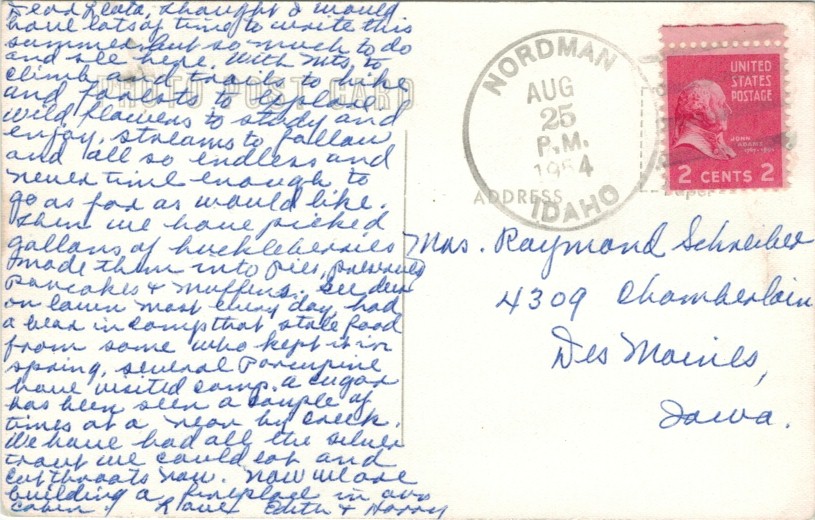 Dear Leota, thought I would
have lots of time to write this
summer but so much to do
and see here. With Mts to
climb and trails to hike
and forests to explore
wild flowers to study and
enjoy, streams to follow
and all so endless and
never time enough to
go as far as would like.
Then we have picked
gallons of huckleberries
made them into pies, preserves
Pancakes & Muffins. See deer
on lawn most every day, had
a bear in camp that stole food
from some who kept it in
spring, several Porcupine
have visited camp. a cugar
has been seen a couple of
times at a near by creek.
We have had all the silver
trout we could eat and
cutthroats now. Now we are
building a fireplace in our
cabin. Love Edith & Harry
PHOTO POST CARD
NORDMAN
AUG
25
P.M.
1954
IDAHO
ADDRESS
UNITED
STATES
POSTAGE
JOHN
ADAMS
2 CENTS 2
Mrs. Raymond Schreiber
4309 Chamberlain
Des Moines,
Iowa.